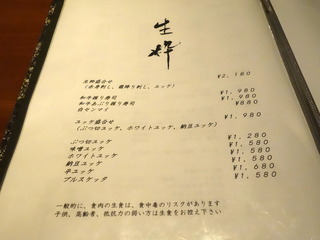 生粋
生粋盛合せ ¥2,180
(赤身刺し、霜降り刺し、ユッケ)
和牛握り寿司 ¥1,980
和牛あぶり握り寿司 ¥1,980
白センマイ ¥880
ユッケ盛合せ ¥1,980
(ぶつ切ユッケ、ホワイトユッケ、納豆ユッケ)
ぶつ切ユッケ ¥1,280
味噌ユッケ ¥1,580
ホワイトユッケ ¥1,580
納豆ユッケ ¥1,580
辛ユッケ ¥1,680
ブルスケッタ ¥1,580
一般的に、食肉の生食は、食中毒のリスクがあります
子供、高齢者、抵抗力の弱い方は生食をお控え下さい